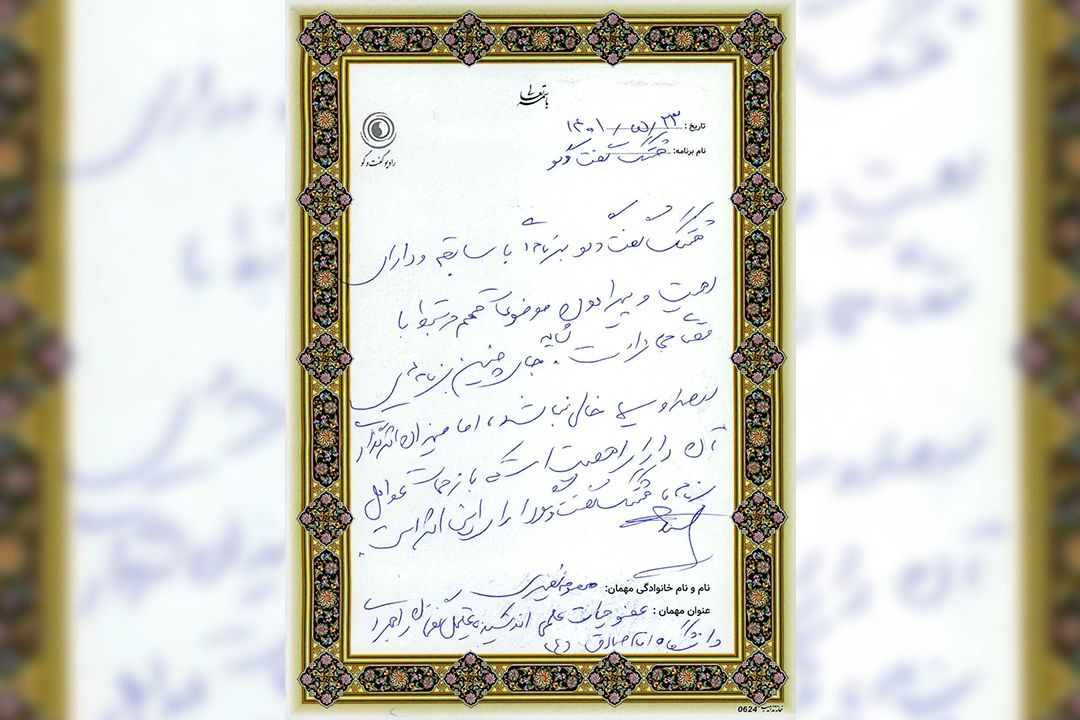 باسمه تعالی
رادیو گفت و گو
تاریخ: ۱۴۰۱/۵/۲۳
نام برنامه: فرهنگ گفت و گو
فرهنگ گفت و گو برنامه‌ای با سابقه و دارای
اهمیت و پیرامون موضوعات مهم مرتبط با
جامعه است. شاید جای چنین برنامه‌هایی
در صدا و سیما خالی نباشد، اما میزان اثرگذاری
آن دارای اهمیت است که با زحمات عوامل
برنامه فرهنگ گفت و گو دارای این اثر است.
نام و نام خانوادگی مهمان: معصومه نصیری
عنوان مهمان: عضو هیات علمی اندیشکده راهبردی
دانشگاه امام صادق (ع)
0624